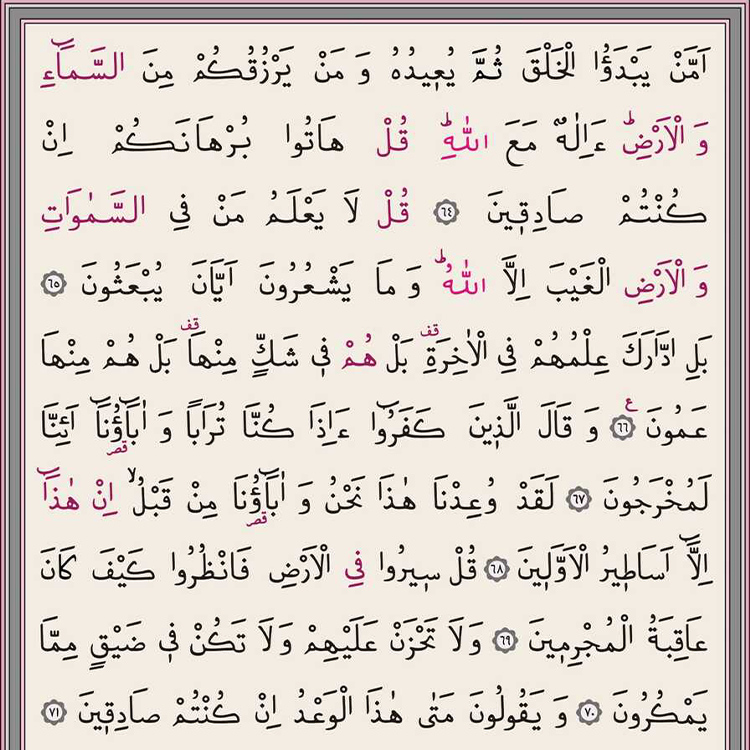 اَمَّنْ يَبْدَؤُا الْخَلْقَ ثُمَّ يُعٖيدُهُ وَ مَنْ يَرْزُقُكُمْ مِنَ السَّمَٓاءِ
وَ الْاَرْضِؕ ءَاِلٰهٌ مَعَ اللّٰهِؕ قُلْ هَاتُوا بُرْهَانَكُمْ اِنْ
كُنْتُمْ صَادِقٖينَ ﴿٦٤﴾ قُلْ لَا يَعْلَمُ مَنْ فِي السَّمٰوَاتِ
وَ الْاَرْضِ الْغَيْبَ اِلَّا اللّٰهُؕ وَ مَا يَشْعُرُونَ اَيَّانَ يُبْعَثُونَ ﴿٦٥﴾
بَلِ ادَّارَكَ عِلْمُهُمْ فِي الْاٰخِرَةِ قف بَلْ هُمْ فٖي شَكٍّ مِنْهَا قف بَلْ هُمْ مِنْهَا
عَمُونَ ﴿٦٦﴾ ع وَ قَالَ الَّذٖينَ كَفَرُٓوا ءَاِذَا كُنَّا تُرَابًا وَ اٰبَٓاؤُ۬نَٓا قصر اَئِنَّا
لَمُخْرَجُونَ ﴿٦٧﴾ لَقَدْ وُعِدْنَا هٰذَا نَحْنُ وَ اٰبَٓاؤُ۬نَا قصر مِنْ قَبْلُۙ اِنْ هٰذَٓا
اِلَّٓا اَسَاطٖيرُ الْاَوَّلٖينَ ﴿٦٨﴾ قُلْ سٖيرُوا فِي الْاَرْضِ فَانْظُرُوا كَيْفَ كَانَ
عَاقِبَةُ الْمُجْرِمٖينَ ﴿٦٩﴾ وَ لَا تَحْزَنْ عَلَيْهِمْ وَ لَا تَكُنْ فٖي ضَيْقٍ مِمَّا
يَمْكُرُونَ ﴿٧٠﴾ وَ يَقُولُونَ مَتٰى هٰذَا الْوَعْدُ اِنْ كُنْتُمْ صَادِقٖينَ ﴿٧١﴾